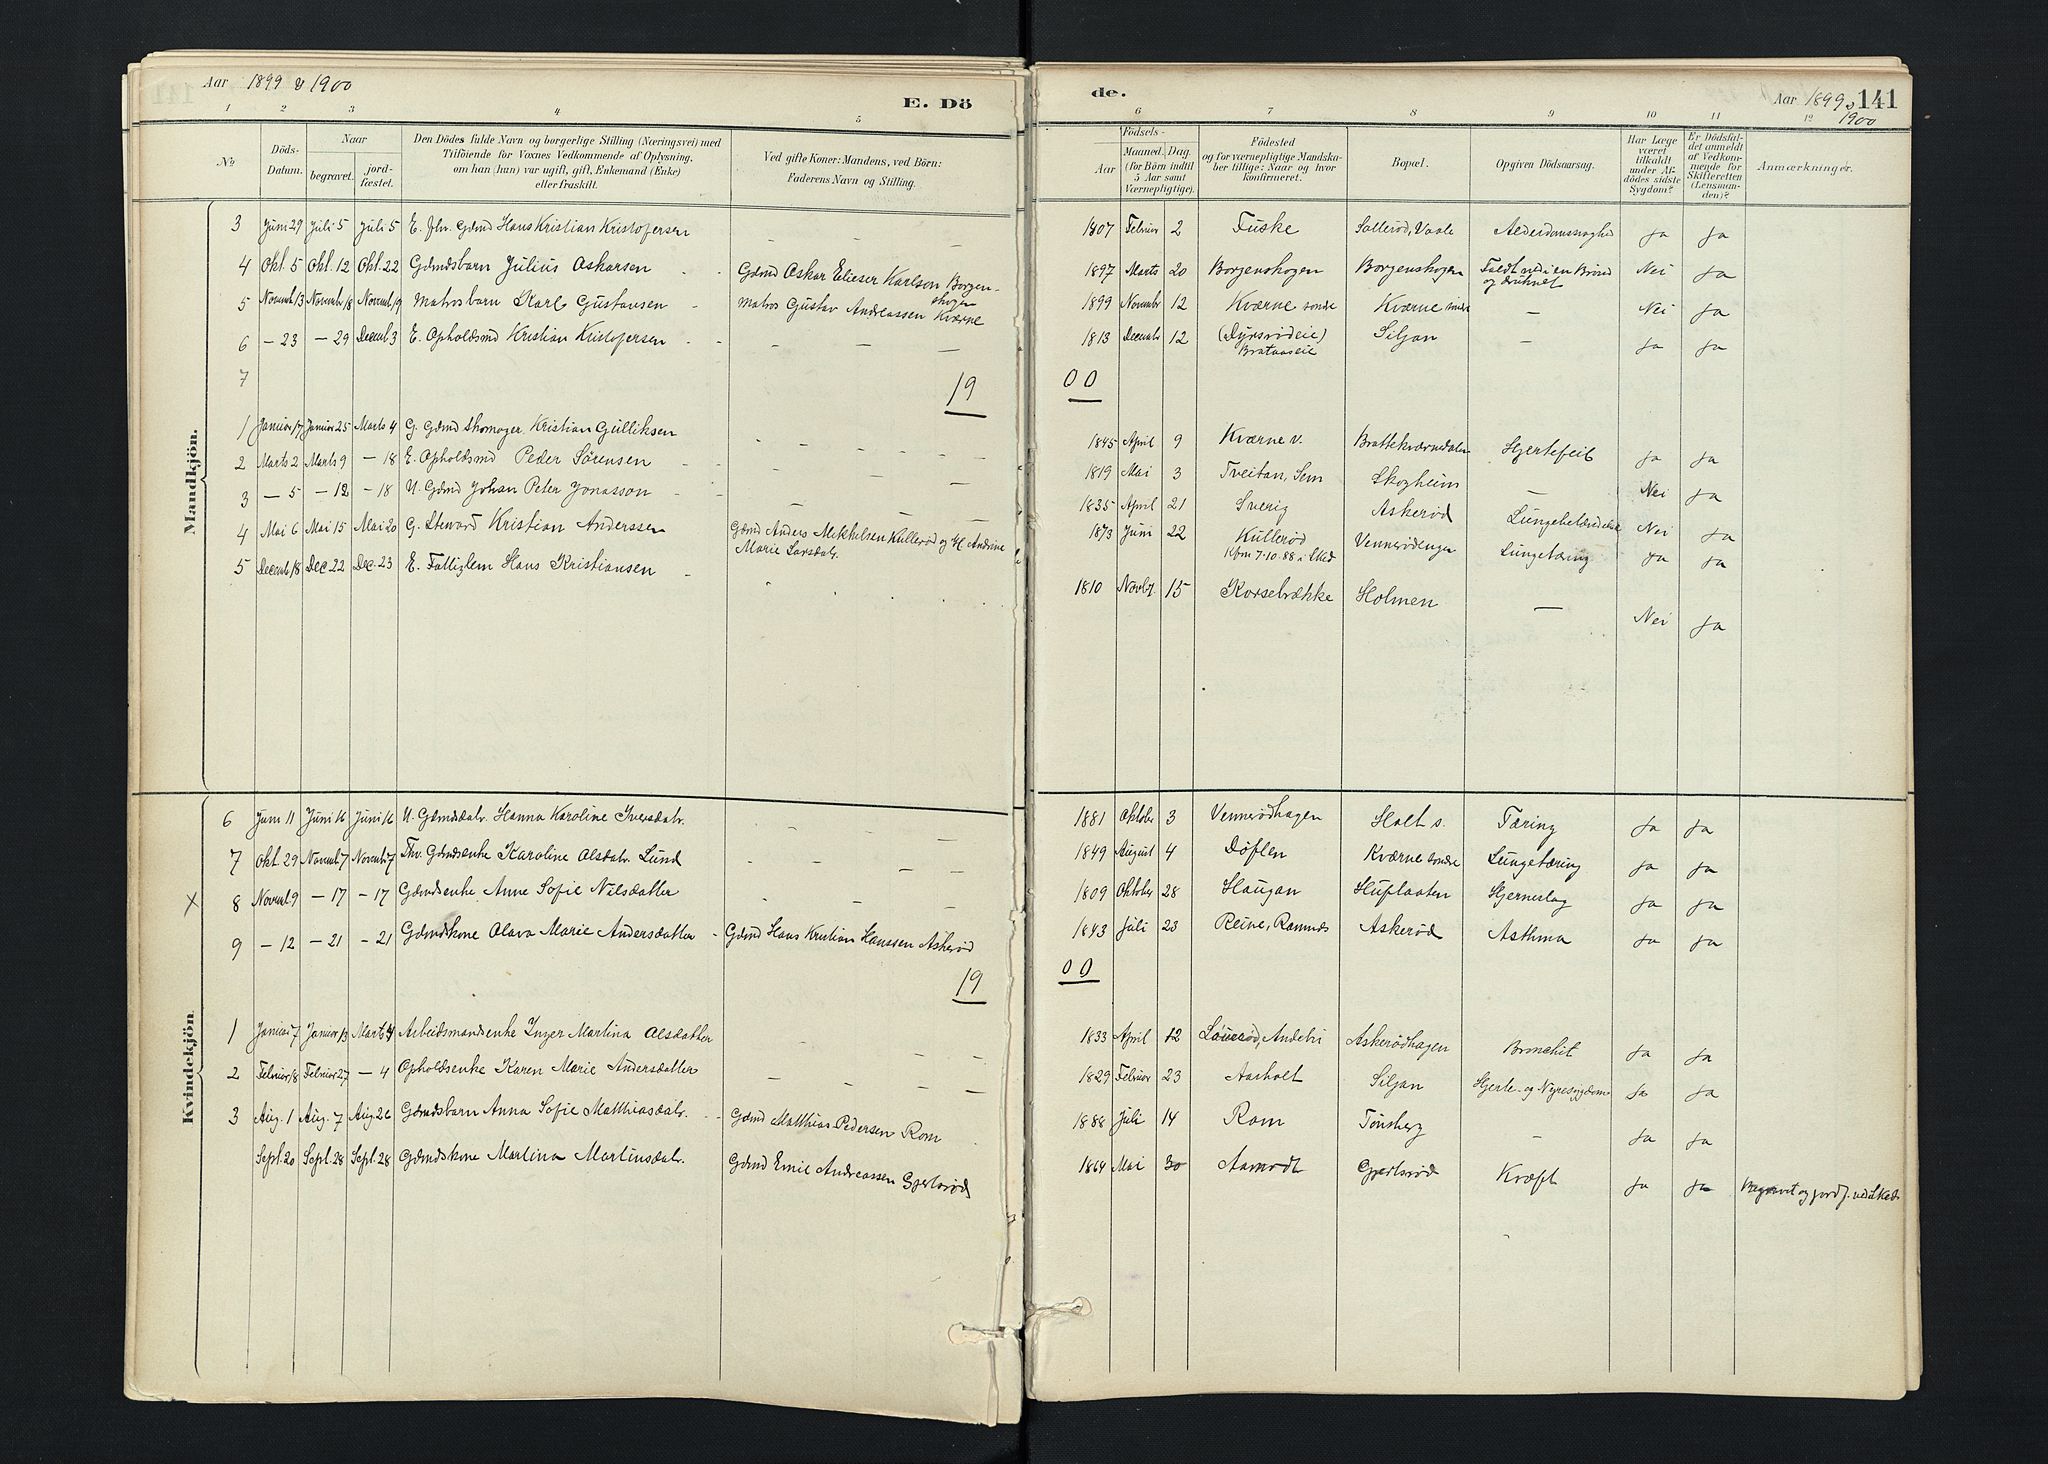 Aar 1899 & 1900
E. Dö
de.
Aar 1899 & 1900
141
1 2 3 4 5 6 7 8 9 10 11 12
No
Döds-Datum.
Naar
begravet.
jordfæstet.
Den Dödes fulde Navn og borgerlige Stilling (Næringsvei) med
Tilföiende for Voxnes Vedkommende af Oplysning,
om han (hun) var ugift, gift, Enkemand (Enke)
eller fraskilt.
Ved gifte Koner: Mandens, ved Börn:
Faderens Navn og Stilling.
Födsels-
Aar
Maaned. Dag
(for Börn indtil
5 Aar samt
Værnepligtige).
Födested
og for værnepligtige Mandskaber tillige: Naar og hvor
konfirmeret.
Bopæl.
Opgiven Dödsaarsag.
Har Læge
været
tilkaldt
under Afdödes sidste
Sygdom?
Er Dödsfaldet anmeldt
af Vedkommende for
Skifteretten
(Lensmanden)?
Anmærkninger.
Mandkjön.
3 Juni 29 Juli 5 Juli 5 E. fhv. Gdmd Hans Kristian Kristofersen — — — 1807 Februar 2 Fuske Sollerød, Vaale Alderdomssvaghed Ja Ja
4 Okt. 5 Okt. 12 Okt. 22 Gdmdsbarn Julius Oskarsen Gdmd Oskar Elieser Karlson Borgenskogen 1897 Marts 20 Borgenskogen Borgenskogen Faldt ned i en Brønd og druknet Nei Ja
5 Novemb. 13 Novemb. 18 Novemb. 19 Matrosbarn Karl Gustavsen Matros Gustav Andreassen Kværne 1899 Novembr 12 Kværne søndre Kværne søndre — Nei Ja
6 — 23 — 29 Decemb. 3 E. Opholdsmd Kristian Kristofersen — — — 1813 Decembr 12 (Dyrsrødeie) Brataaseie Siljan — Ja Ja
7
19 00
1 Januar 17 Januar 25 Marts 4 G. Gdmd Skomager Kristian Gulliksen — — — 1845 April 9 Kværne v. Brattekværnedalen Hjertefeil Ja Ja
2 Marts 2 Marts 9 — 18 E. Opholdsmd Peder Sørensen — — — 1819 Mai 3 Tveitan, Sem Skogheim — Nei Ja
3 — 5 — 12 — 18 U. Gdmd Johan Peter Jonasson — — — 1835 April 21 Sverig Askerød Lungebetændelse Nei Ja
4 Mai 6 Mai 15 Mai 20 G. Steward Kristian Anderssen Gdmd Anders Mikkelsen Kullerød og H. Andrine Marie Larsdatr. 1873 Juni 22 Kullerød Kfm 7.10.88 i SKed Vennerødenga Lungetæring Ja Ja
5 Decemb. 18 Dec. 22 Dec. 23 E. Fattiglem Hans Kristiansen 1810 Novbr. 15 Korsebrække Holmen — Nei Ja
Kvindekjön.
6 Juni 11 Juni 16 Juni 16 U. Gdmdsdatr. Hanna Karoline Iversdatr. — — — 1881 Oktober 3 Vennerødhagen Holt s. Tæring Ja Ja
7 Okt. 29 Novemb. 7 Novemb. 7 Fhv. Gdmdsenke Karoline Olsdatr. Lund — — — 1849 August 4 Døflen Kværne søndre Lungetæring Ja Ja
x 8 Novemb. 9 — 17 — 17 Gdmdsenke Anne Sofie Nilsdatter — — — 1809 Oktober 28 Haugan Huflaaten Hjerneslag Ja Ja
9 — 12 — 21 — 21 Gdmdskone Olava Marie Andersdatter Gdmd Hans Kristian Hanssen Askerød 1843 Juli 23 Reine, Ramnæs Askerød Asthma Ja Ja
19 00
1 Januar 7 Januar 13 Marts 4 Arbeidsmandsenke Inger Martina Olsdatter — — — 1833 April 12 Lauesød, Andebu Askerødhagen Bronchit Ja Ja
2 Februar 18 Februar 27 — 4 Opholdsenke Karen Marie Andersdatter — — — 1829 Februar 23 Aasholt Siljan Hjerte- og Nyresygdom Ja Ja
3 Aug. 1 Aug. 7 Aug. 26 Gdmdsbarn Anna Sofie Matthiasdatr. Gdmd Matthias Pedersen Rom 1888 Juli 14 Rom Tønsberg — Ja Ja
Sept. 20 Sept. 28 Sept. 28 Gdmdskone Martina Martinsdatr. Gdmd Emil Andreassen Gjertsrød 1864 Mai 30 Aamodt Gjertsrød Kræft Ja Ja Begravet og jordf. ved SKed